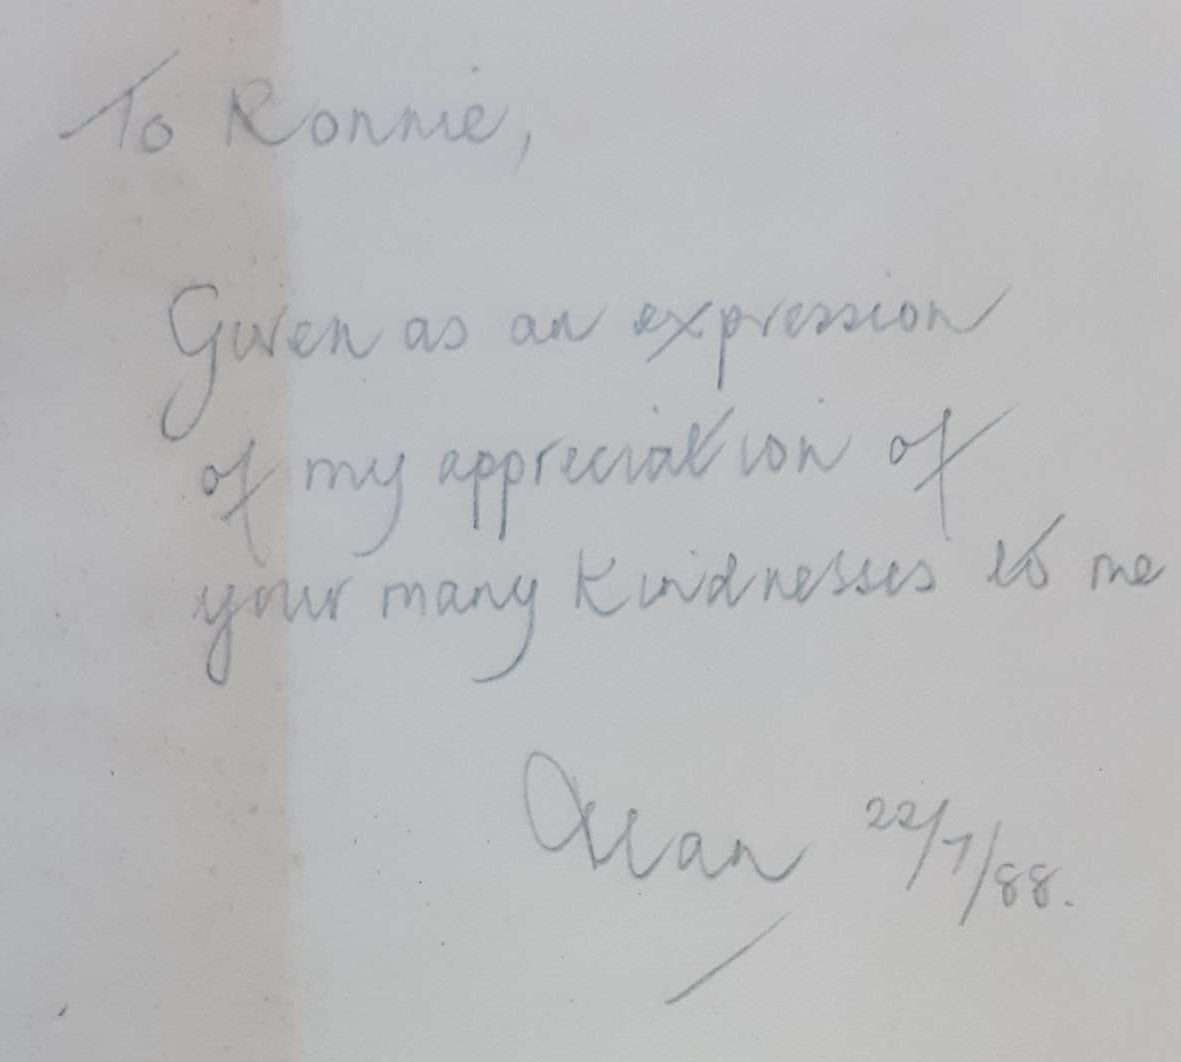 To Ronnie,
Given as an expression
of my appreciation of
your many kindnesses to me
Alan 22/7/88.